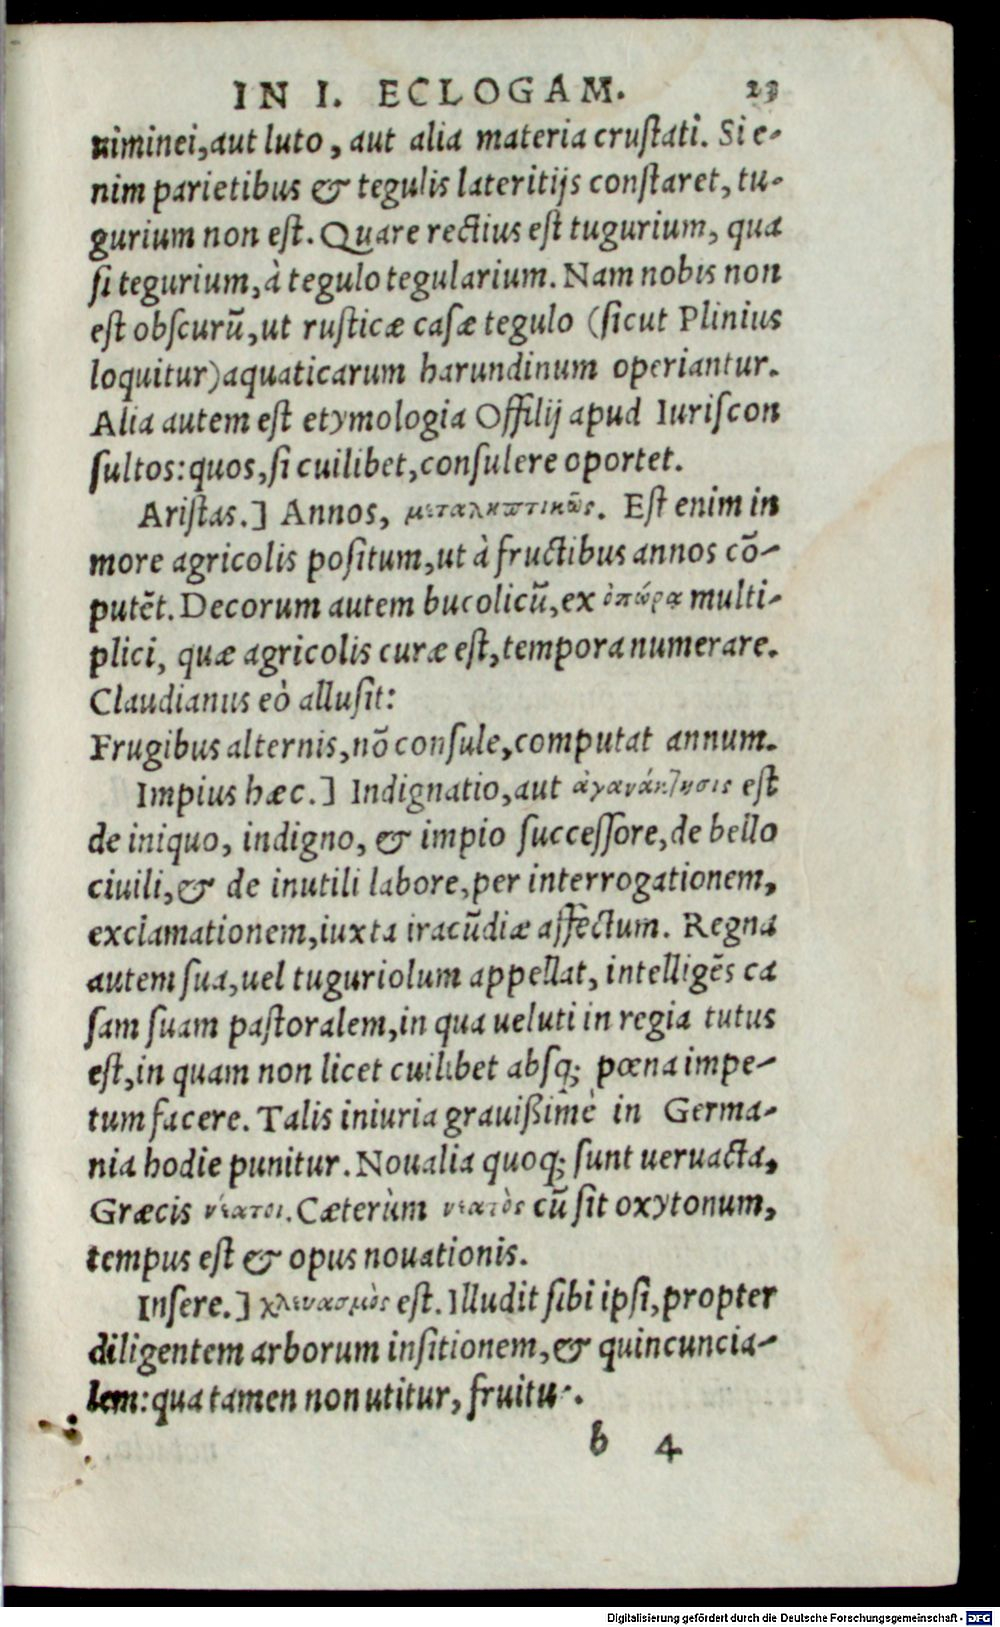 IN I. ECLOGAM. 23
uiminei, aut luto, aut alia materia crustati. Si e-
nim parietibus & tegulis lateritijs constaret, tu-
gurium non est. Quare rectius est tugurium, qua
si tegurium, à tegulo tegularium. Nam nobis non
est obscurũ, ut rusticæ casæ tegulo (sicut Plinius
loquitur) aquaticarum harundinum operiantur.
Alia autem est etymologia Offilij apud Iuriscon
sultos: quos, si cuilibet, consulere oportet.
Aristas.] Annos, μεταληπτικῶς. Est enim in
more agricolis positum, ut à fructibus annos cõ-
putẽt. Decorum autem bucolicũ, ex ὀπώρα multi-
plici, quæ agricolis curæ est, tempora numerare.
Claudianus eò allusit:
Frugibus alternis, nõ consule, computat annum.
Impius hæc.] Indignatio, aut ἀγανάκτησις est
de iniquo, indigno, & impio successore, de bello
ciuili, & de inutili labore, per interrogationem,
exclamationem, iuxta iracũdiæ affectum. Regna
autem sua, uel tuguriolum appellat, intelligẽs ca
sam suam pastoralem, in qua ueluti in regia tutus
est, in quam non licet cuilibet absq; pœna impe-
tum facere. Talis iniuria grauißimè in Germa-
nia hodie punitur. Noualia quoq; sunt ueruacta,
Græcis νέατοι. Cæterùm νεατὸς cũ sit oxytonum,
tempus est & opus nouationis.
Insere.] χλευασμὸς est. Illudit sibi ipsi, propter
diligentem arborum insitionem, & quincuncia-
lem: qua tamen non utitur, fruitur.
b 4
Digitalisierung gefördert durch die Deutsche Forschungsgemeinschaft - DFG